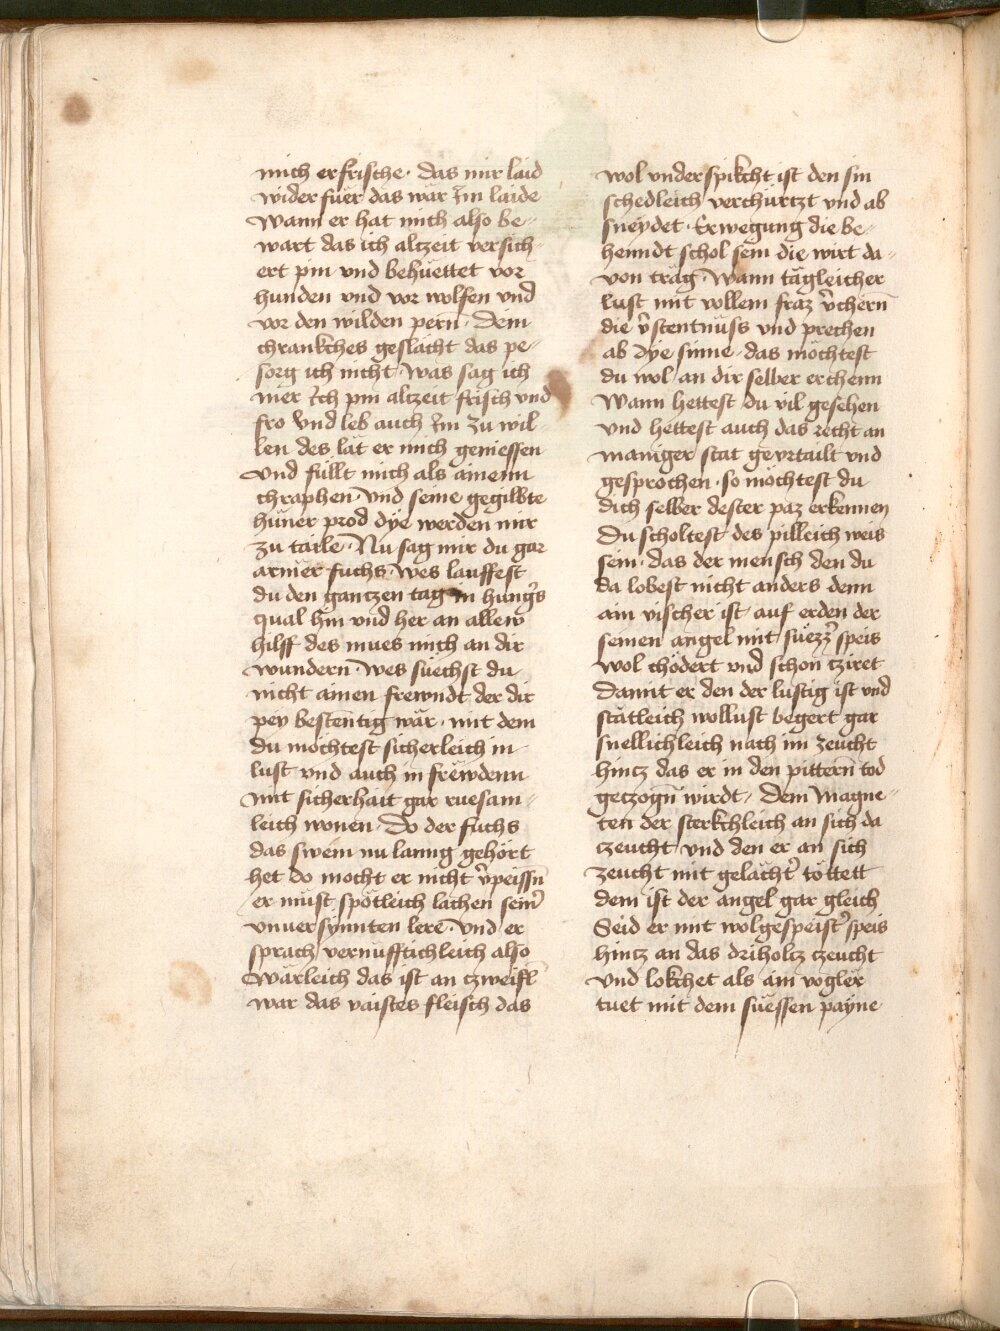 mich erfrische · das mir laid
wider fuer das wär im̄ laide
wann er hat mich also be⸗
wart das ich alczeit versich⸗
ert pin vnd behuettet vor
hunden vnd vor wolfen vnd
vor den wilden pern̄ · Dein
chrankches geslächt das pe⸗
sorg ich nicht · was sag ich
mer Ich pin alczeit frisch vnd
fro vnd leb auch im̄ zu wil⸗
len des lät er mich geniessen
vnd füllt mich als ainenn
chraphen · vnd seine gegilbte
hüner prod dye werden mir
zu taile · Nu sag mir du gar
armer fuchs · wes lauffest
du den gantzen tag in hungˀs
qual hin vnd her an allew
hilff des mues mich an dir
wundern̄ · wes suechst du
nicht ainen frewndt der dir
pey bestentig wär · mit dem
du möchtest sicherleich in
lust vnd auch in frewdenn
mit sicherhait gar ruesam⸗
leich wonen · Do der fuchs
das swein nu lanng gehört
het do mocht er nicht v̉peissn̄
er must spötleich lachen seinˀ
vnuersynnten lere · vnd er
sprach vernufftichleich also
Wärleich das ist an czweifl̄
war das vaistes fleisch das
wol vnderspikcht ist den sin
schedleich verchürtzt vnd ab
sneydet · Erwegung die be⸗
henndt schol sein die wirt da⸗
von träg · Wann tägleicher
lust mit vollem fraz v̉chern̄
die v̉stentnüss vnd prechen
ab dye sinne · das möchtest
du wol an dir selber erchenn
Wann hettest du vil gesehen
vnd hettest auch das recht an
maniger stat gevrtailt vnd
gesprochen · so möchtest du
dich selber dester paz erkennen
Du scholtest des pilleich weis
sein · das der mensch den du
da lobest nicht anders denn
ain vischer ist · auf erden der
seinen angel mit süezzˀ speis
wol chödert vnd schon cziret
Damit er den der lustig ist vnd
stätleich wollust begert gar
snellichleich nach im zeucht
hincz das er in den pittern̄ tod
geczogn̄ wirdt · Dem Magne⸗
ten der sterkchleich an sich da
czeucht vnd den er an sich
zeucht mit gelächtˀ töttett
dem ist der angel gar gleich
Seid er mit wolgespeistˀ speis
hincz an das driholcz czeucht
vnd lokchet als ain vogler
tuet mit dem süessen payne